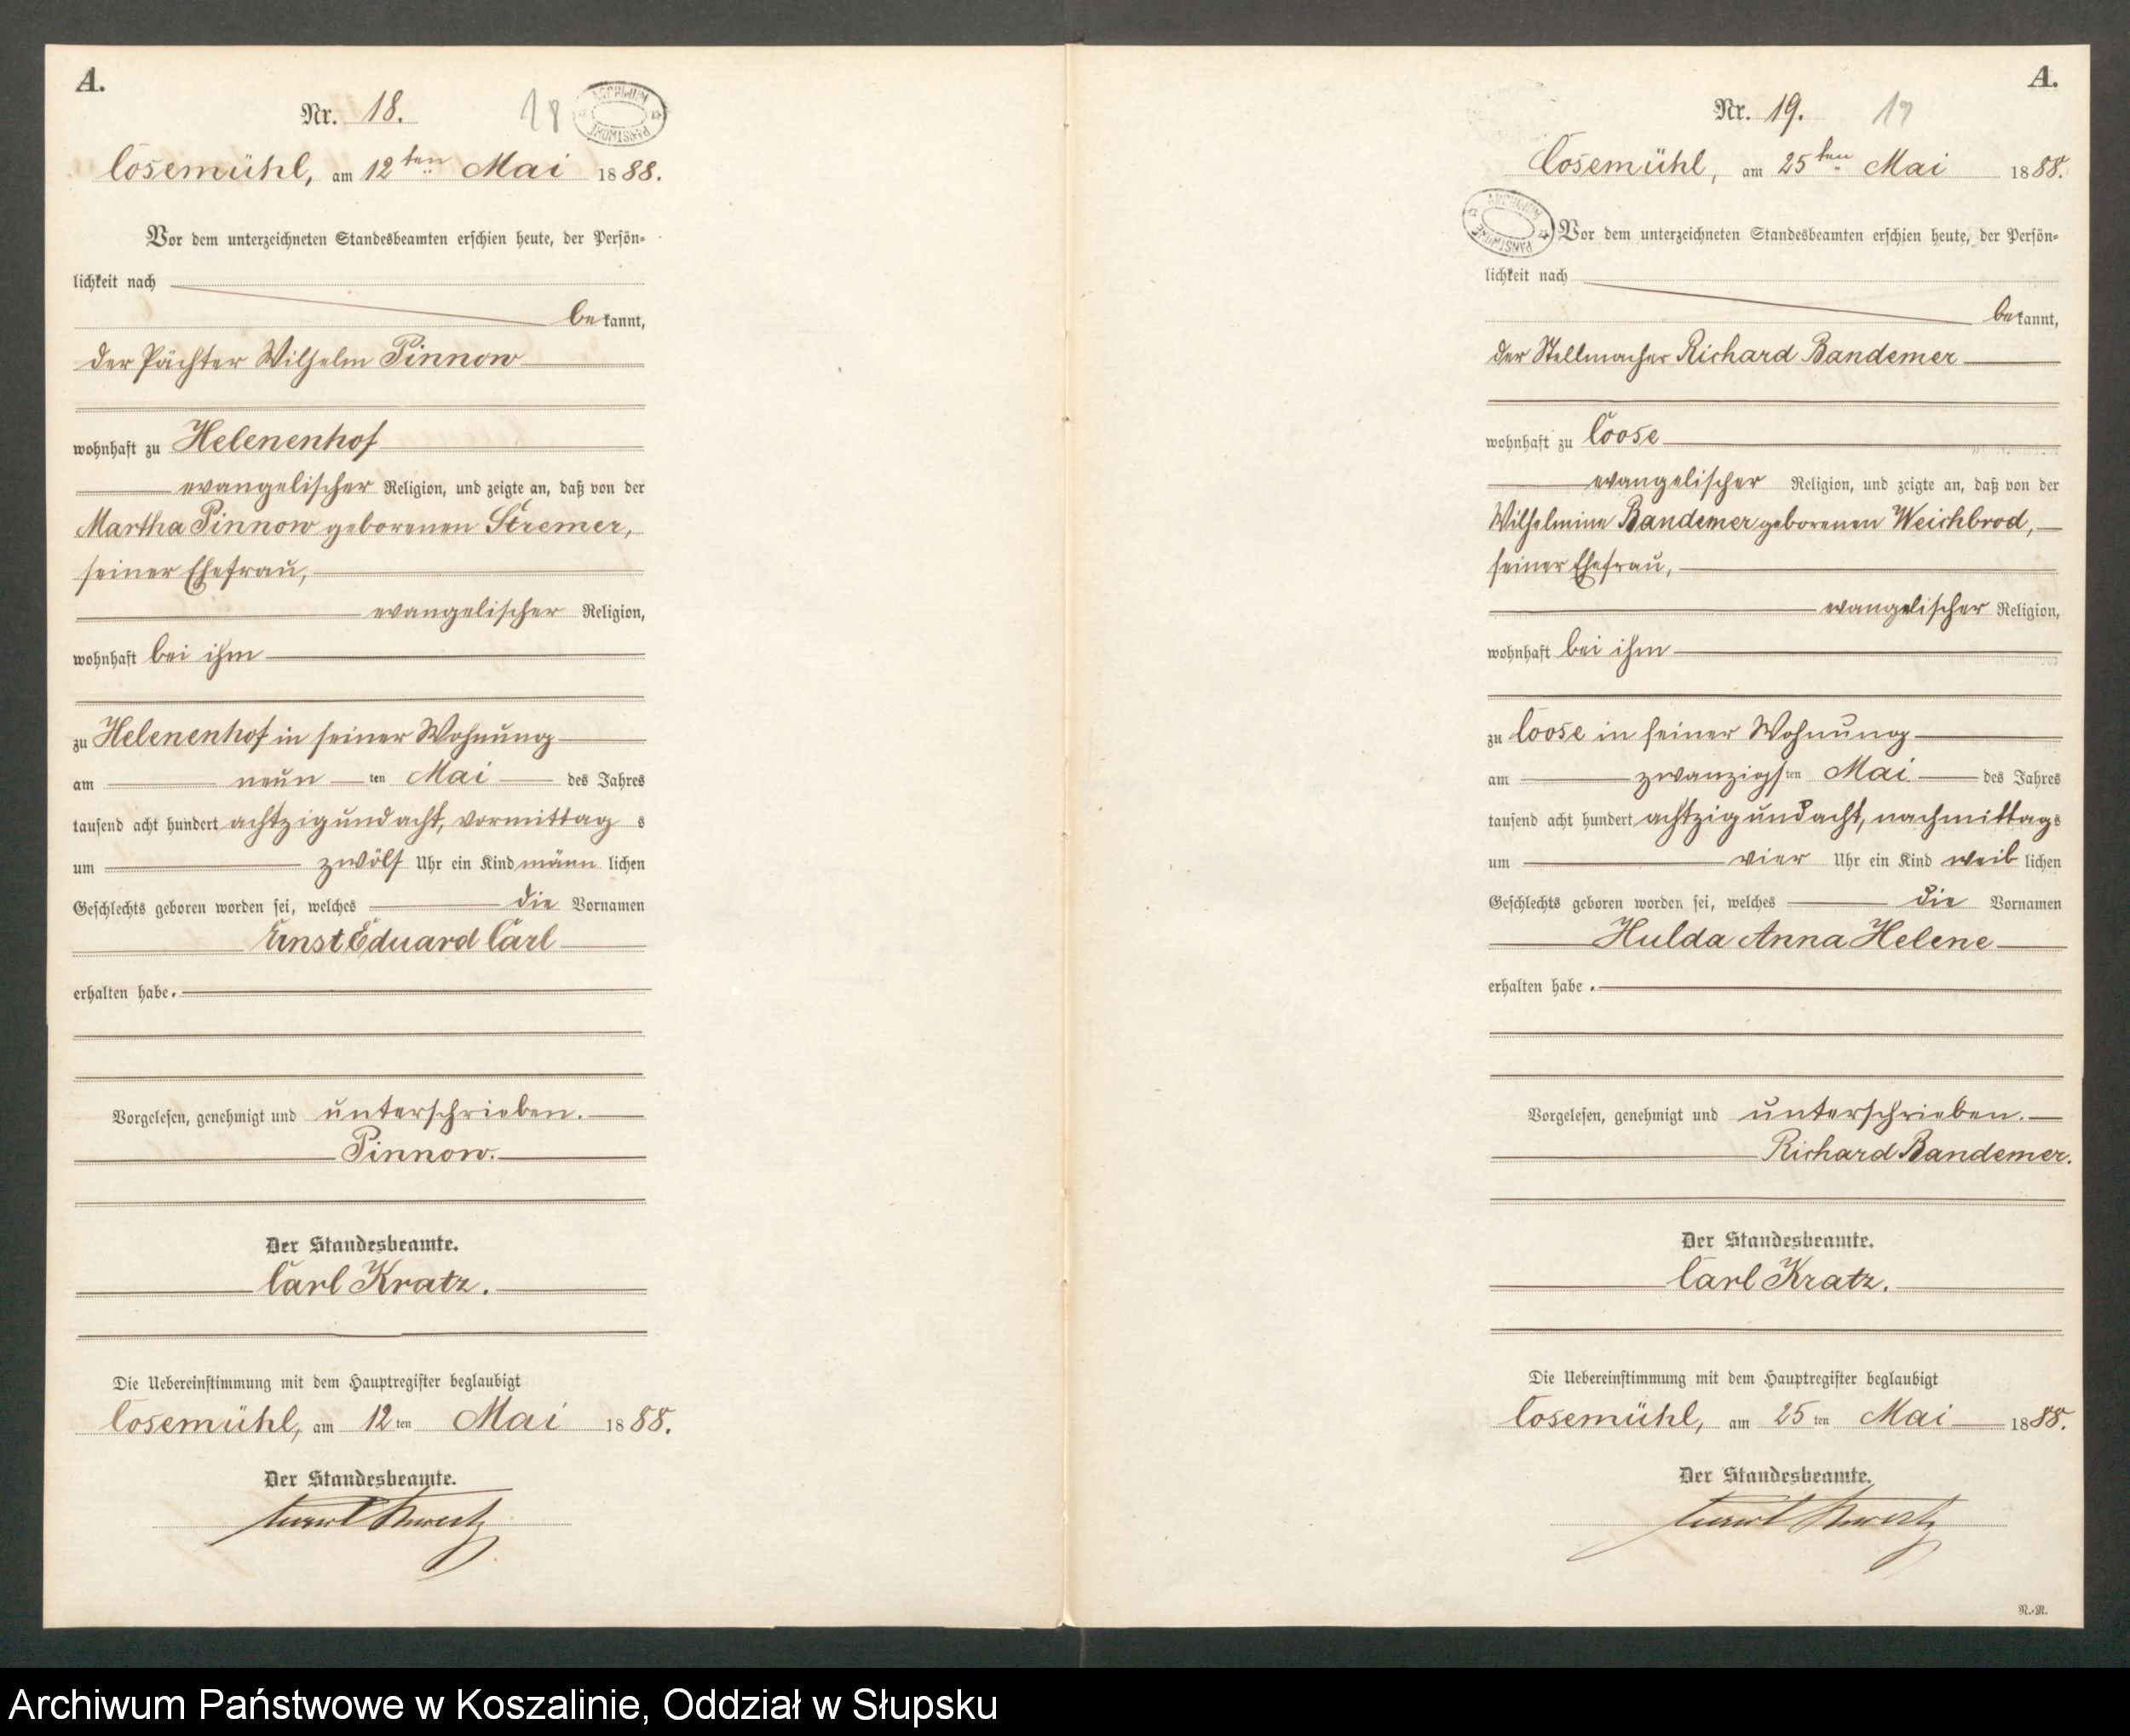 A.
Nr. 18.
18
ARCHIWUM PAŃSTWOWE
Cösemühl, am 12ten Mai 1888.
Vor dem unterzeichneten Standesbeamten erschien heute, der Persön-
lichkeit nach
bekannt,
der Pächter Wilhelm Pinnow
wohnhaft zu Helenenhof
evangelischer Religion, und zeigte an, daß von der
Martha Pinnow geborenen Stremer,
seiner Ehefrau,
evangelischer Religion,
wohnhaft bei ihm
zu Helenenhof in seiner Wohnung
am neun ten Mai des Jahres
tausend acht hundert achtzig und acht, vormittag s
um zwölf Uhr ein Kind männ lichen
Geschlechts geboren worden sei, welches die Vornamen
Ernst Eduard Carl
erhalten habe.
Vorgelesen, genehmigt und unterschrieben.
Pinnow.
Der Standesbeamte.
Carl Kratz.
Die Uebereinstimmung mit dem Hauptregister beglaubigt
Cosemühl, am 12 ten Mai 1888.
Der Standesbeamte.
A.
Nr. 19.
19
ARCHIWUM PAŃSTWOWE
Cosemühl, am 25ten Mai 1888.
Vor dem unterzeichneten Standesbeamten erschien heute, der Persön-
lichkeit nach
bekannt,
der Stellmacher Richard Bandemer
wohnhaft zu Coose
evangelischer Religion, und zeigte an, daß von der
Wilhelmine Bandemer geborenen Weichbrod,
seiner Ehefrau,
evangelischer Religion,
wohnhaft bei ihm
zu Coose in seiner Wohnung
am zwanzigsten Mai des Jahres
tausend acht hundert achtzig und acht, nachmittags
um vier Uhr ein Kind weib lichen
Geschlechts geboren worden sei, welches die Vornamen
Hulda Anna Helene
erhalten habe.
Vorgelesen, genehmigt und unterschrieben.
Richard Bandemer.
Der Standesbeamte.
Carl Kratz.
Die Uebereinstimmung mit dem Hauptregister beglaubigt
Cosemühl, am 25 ten Mai 1888.
Der Standesbeamte.
Archiwum Państwowe w Koszalinie, Oddział w Słupsku